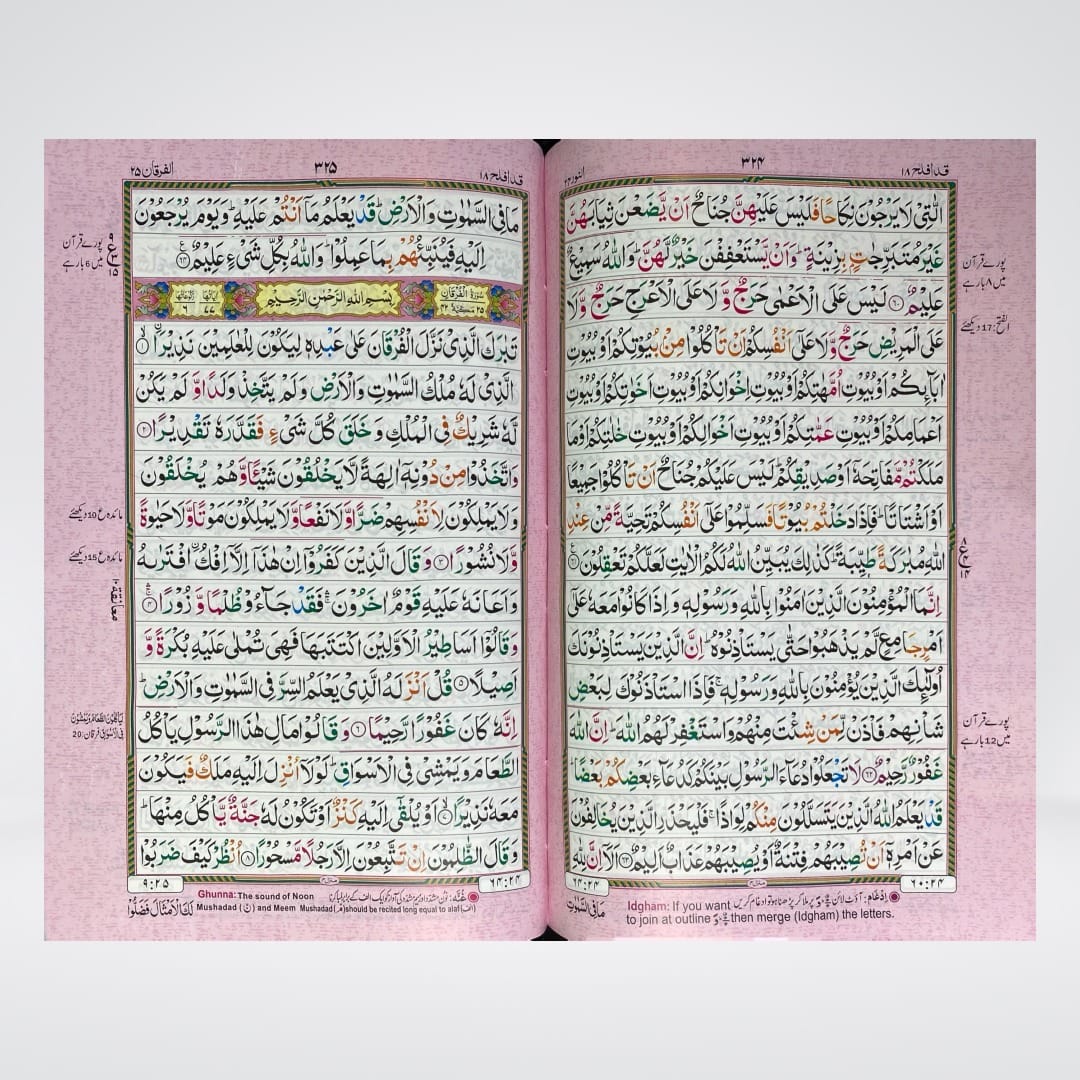 قد افلح ١٨
٣٢٤
النور ٢٤
الّٰتِیْ لَا یَرْجُوْنَ نِكَاحًا فَلَیْسَ عَلَیْهِنَّ جُنَاحٌ اَنْ یَّضَعْنَ ثِیَابَهُنَّ
غَیْرَ مُتَبَرِّجٰتٍۭ بِزِیْنَةٍ ؕ وَ اَنْ یَّسْتَعْفِفْنَ خَیْرٌ لَّهُنَّ ؕ وَ اللّٰهُ سَمِیْعٌ
عَلِیْمٌ ﴿۶۰﴾ لَیْسَ عَلَی الْاَعْمٰی حَرَجٌ وَّ لَا عَلَی الْاَعْرَجِ حَرَجٌ وَّ لَا
عَلَی الْمَرِیْضِ حَرَجٌ وَّ لَا عَلٰۤی اَنْفُسِكُمْ اَنْ تَاْكُلُوْا مِنْۢ بُیُوْتِكُمْ اَوْ بُیُوْتِ
اٰبَآىِٕكُمْ اَوْ بُیُوْتِ اُمَّهٰتِكُمْ اَوْ بُیُوْتِ اِخْوَانِكُمْ اَوْ بُیُوْتِ اَخَوٰتِكُمْ اَوْ بُیُوْتِ
اَعْمَامِكُمْ اَوْ بُیُوْتِ عَمّٰتِكُمْ اَوْ بُیُوْتِ اَخْوَالِكُمْ اَوْ بُیُوْتِ خٰلٰتِكُمْ اَوْ مَا
مَلَكْتُمْ مَّفَاتِحَهٗۤ اَوْ صَدِیْقِكُمْ ؕ لَیْسَ عَلَیْكُمْ جُنَاحٌ اَنْ تَاْكُلُوْا جَمِیْعًا
اَوْ اَشْتَاتًا ؕ فَاِذَا دَخَلْتُمْ بُیُوْتًا فَسَلِّمُوْا عَلٰۤی اَنْفُسِكُمْ تَحِیَّةً مِّنْ عِنْدِ
اللّٰهِ مُبٰرَكَةً طَیِّبَةً ؕ كَذٰلِكَ یُبَیِّنُ اللّٰهُ لَكُمُ الْاٰیٰتِ لَعَلَّكُمْ تَعْقِلُوْنَ ﴿۶۱﴾
اِنَّمَا الْمُؤْمِنُوْنَ الَّذِیْنَ اٰمَنُوْا بِاللّٰهِ وَ رَسُوْلِهٖ وَ اِذَا كَانُوْا مَعَهٗ عَلٰۤی
اَمْرٍ جَامِعٍ لَّمْ یَذْهَبُوْا حَتّٰی یَسْتَاْذِنُوْهُ ؕ اِنَّ الَّذِیْنَ یَسْتَاْذِنُوْنَكَ
اُولٰٓىِٕكَ الَّذِیْنَ یُؤْمِنُوْنَ بِاللّٰهِ وَ رَسُوْلِهٖ ۚ فَاِذَا اسْتَاْذَنُوْكَ لِبَعْضِ
شَاْنِهِمْ فَاْذَنْ لِّمَنْ شِئْتَ مِنْهُمْ وَ اسْتَغْفِرْ لَهُمُ اللّٰهَ ؕ اِنَّ اللّٰهَ
غَفُوْرٌ رَّحِیْمٌ ﴿۶۲﴾ لَا تَجْعَلُوْا دُعَآءَ الرَّسُوْلِ بَیْنَكُمْ كَدُعَآءِ بَعْضِكُمْ بَعْضًا ؕ
قَدْ یَعْلَمُ اللّٰهُ الَّذِیْنَ یَتَسَلَّلُوْنَ مِنْكُمْ لِوَاذًا ۚ فَلْیَحْذَرِ الَّذِیْنَ یُخَالِفُوْنَ
عَنْ اَمْرِهٖۤ اَنْ تُصِیْبَهُمْ فِتْنَةٌ اَوْ یُصِیْبَهُمْ عَذَابٌ اَلِیْمٌ ﴿۶۳﴾ اَلَاۤ اِنَّ لِلّٰهِ
پورے قرآن
میں 8 بار ہے
الفتح: 17 دیکھئے
ع
پورے قرآن
میں 12 بار ہے
٦٠:٢٤
منزل ٤
٦٣:٢٤
اِدْغام: آؤٹ لائن پر ملا کر پڑھنا ہو تو ادغام کریں
Idgham: If you want
to join at outline then merge (Idgham) the letters.
مَا فِی السَّمٰوٰتِ
قد افلح ١٨
٣٢٥
الفرقان ٢٥
مَا فِی السَّمٰوٰتِ وَ الْاَرْضِ ؕ قَدْ یَعْلَمُ مَاۤ اَنْتُمْ عَلَیْهِ ؕ وَ یَوْمَ یُرْجَعُوْنَ
اِلَیْهِ فَیُنَبِّئُهُمْ بِمَا عَمِلُوْا ؕ وَ اللّٰهُ بِكُلِّ شَیْءٍ عَلِیْمٌ ﴿۶۴﴾
سُوْرَةُ الْفُرْقَانِ ٢٥ مَكِّيَّةٌ ٤٢ بِسْمِ اللّٰهِ الرَّحْمٰنِ الرَّحِیْمِ اٰیَاتُهَا ٧٧ رُكُوْعَاتُهَا ٦
تَبٰرَكَ الَّذِیْ نَزَّلَ الْفُرْقَانَ عَلٰی عَبْدِهٖ لِیَكُوْنَ لِلْعٰلَمِیْنَ نَذِیْرَا ﴿۱﴾
الَّذِیْ لَهٗ مُلْكُ السَّمٰوٰتِ وَ الْاَرْضِ وَ لَمْ یَتَّخِذْ وَلَدًا وَّ لَمْ یَكُنْ
لَّهٗ شَرِیْكٌ فِی الْمُلْكِ وَ خَلَقَ كُلَّ شَیْءٍ فَقَدَّرَهٗ تَقْدِیْرًا ﴿۲﴾
وَ اتَّخَذُوْا مِنْ دُوْنِهٖۤ اٰلِهَةً لَّا یَخْلُقُوْنَ شَیْـًٔا وَّ هُمْ یُخْلَقُوْنَ
وَ لَا یَمْلِكُوْنَ لِاَنْفُسِهِمْ ضَرًّا وَّ لَا نَفْعًا وَّ لَا یَمْلِكُوْنَ مَوْتًا وَّ لَا حَیٰوةً
وَّ لَا نُشُوْرًا ﴿۳﴾ وَ قَالَ الَّذِیْنَ كَفَرُوْۤا اِنْ هٰذَاۤ اِلَّاۤ اِفْكُ اِ۟فْتَرٰىهُ
وَ اَعَانَهٗ عَلَیْهِ قَوْمٌ اٰخَرُوْنَ ۛۚ فَقَدْ جَآءُوْ ظُلْمًا وَّ زُوْرًا ﴿۴﴾
وَ قَالُوْۤا اَسَاطِیْرُ الْاَوَّلِیْنَ اكْتَتَبَهَا فَهِیَ تُمْلٰی عَلَیْهِ بُكْرَةً وَّ
اَصِیْلًا ﴿۵﴾ قُلْ اَنْزَلَهُ الَّذِیْ یَعْلَمُ السِّرَّ فِی السَّمٰوٰتِ وَ الْاَرْضِ ؕ
اِنَّهٗ كَانَ غَفُوْرًا رَّحِیْمًا ﴿۶﴾ وَ قَالُوْا مَالِ هٰذَا الرَّسُوْلِ یَاْكُلُ
الطَّعَامَ وَ یَمْشِیْ فِی الْاَسْوَاقِ ؕ لَوْلَاۤ اُنْزِلَ اِلَیْهِ مَلَكٌ فَیَكُوْنَ
مَعَهٗ نَذِیْرًا ﴿۷﴾ اَوْ یُلْقٰۤی اِلَیْهِ كَنْزٌ اَوْ تَكُوْنُ لَهٗ جَنَّةٌ یَّاْكُلُ مِنْهَا ؕ
وَ قَالَ الظّٰلِمُوْنَ اِنْ تَتَّبِعُوْنَ اِلَّا رَجُلًا مَّسْحُوْرًا ﴿۸﴾ اُنْظُرْ كَیْفَ ضَرَبُوْا
پورے قرآن
میں 6 بار ہے
مائدہ ع 10 دیکھئے
مائدہ ع 15 دیکھئے
معانقة ١٠
لَيَأْكُلُوْنَ الطَّعَامَ وَيَمْشُوْنَ
فِي الْاَسْوَاقِ فرقان: 20
٦٤:٢٤
منزل ٤
٩:٢٥
غُنَّہ: نون مشدد اور میم مشدد کی آواز کو ایک الف کے برابر لمبا کرنا
Ghunna: The sound of Noon
Mushadad (نّ) and Meem Mushadad (مّ) should be recited long equal to alaf (الف)
لَكَ الْاَمْثَالَ فَضَلُّوْا